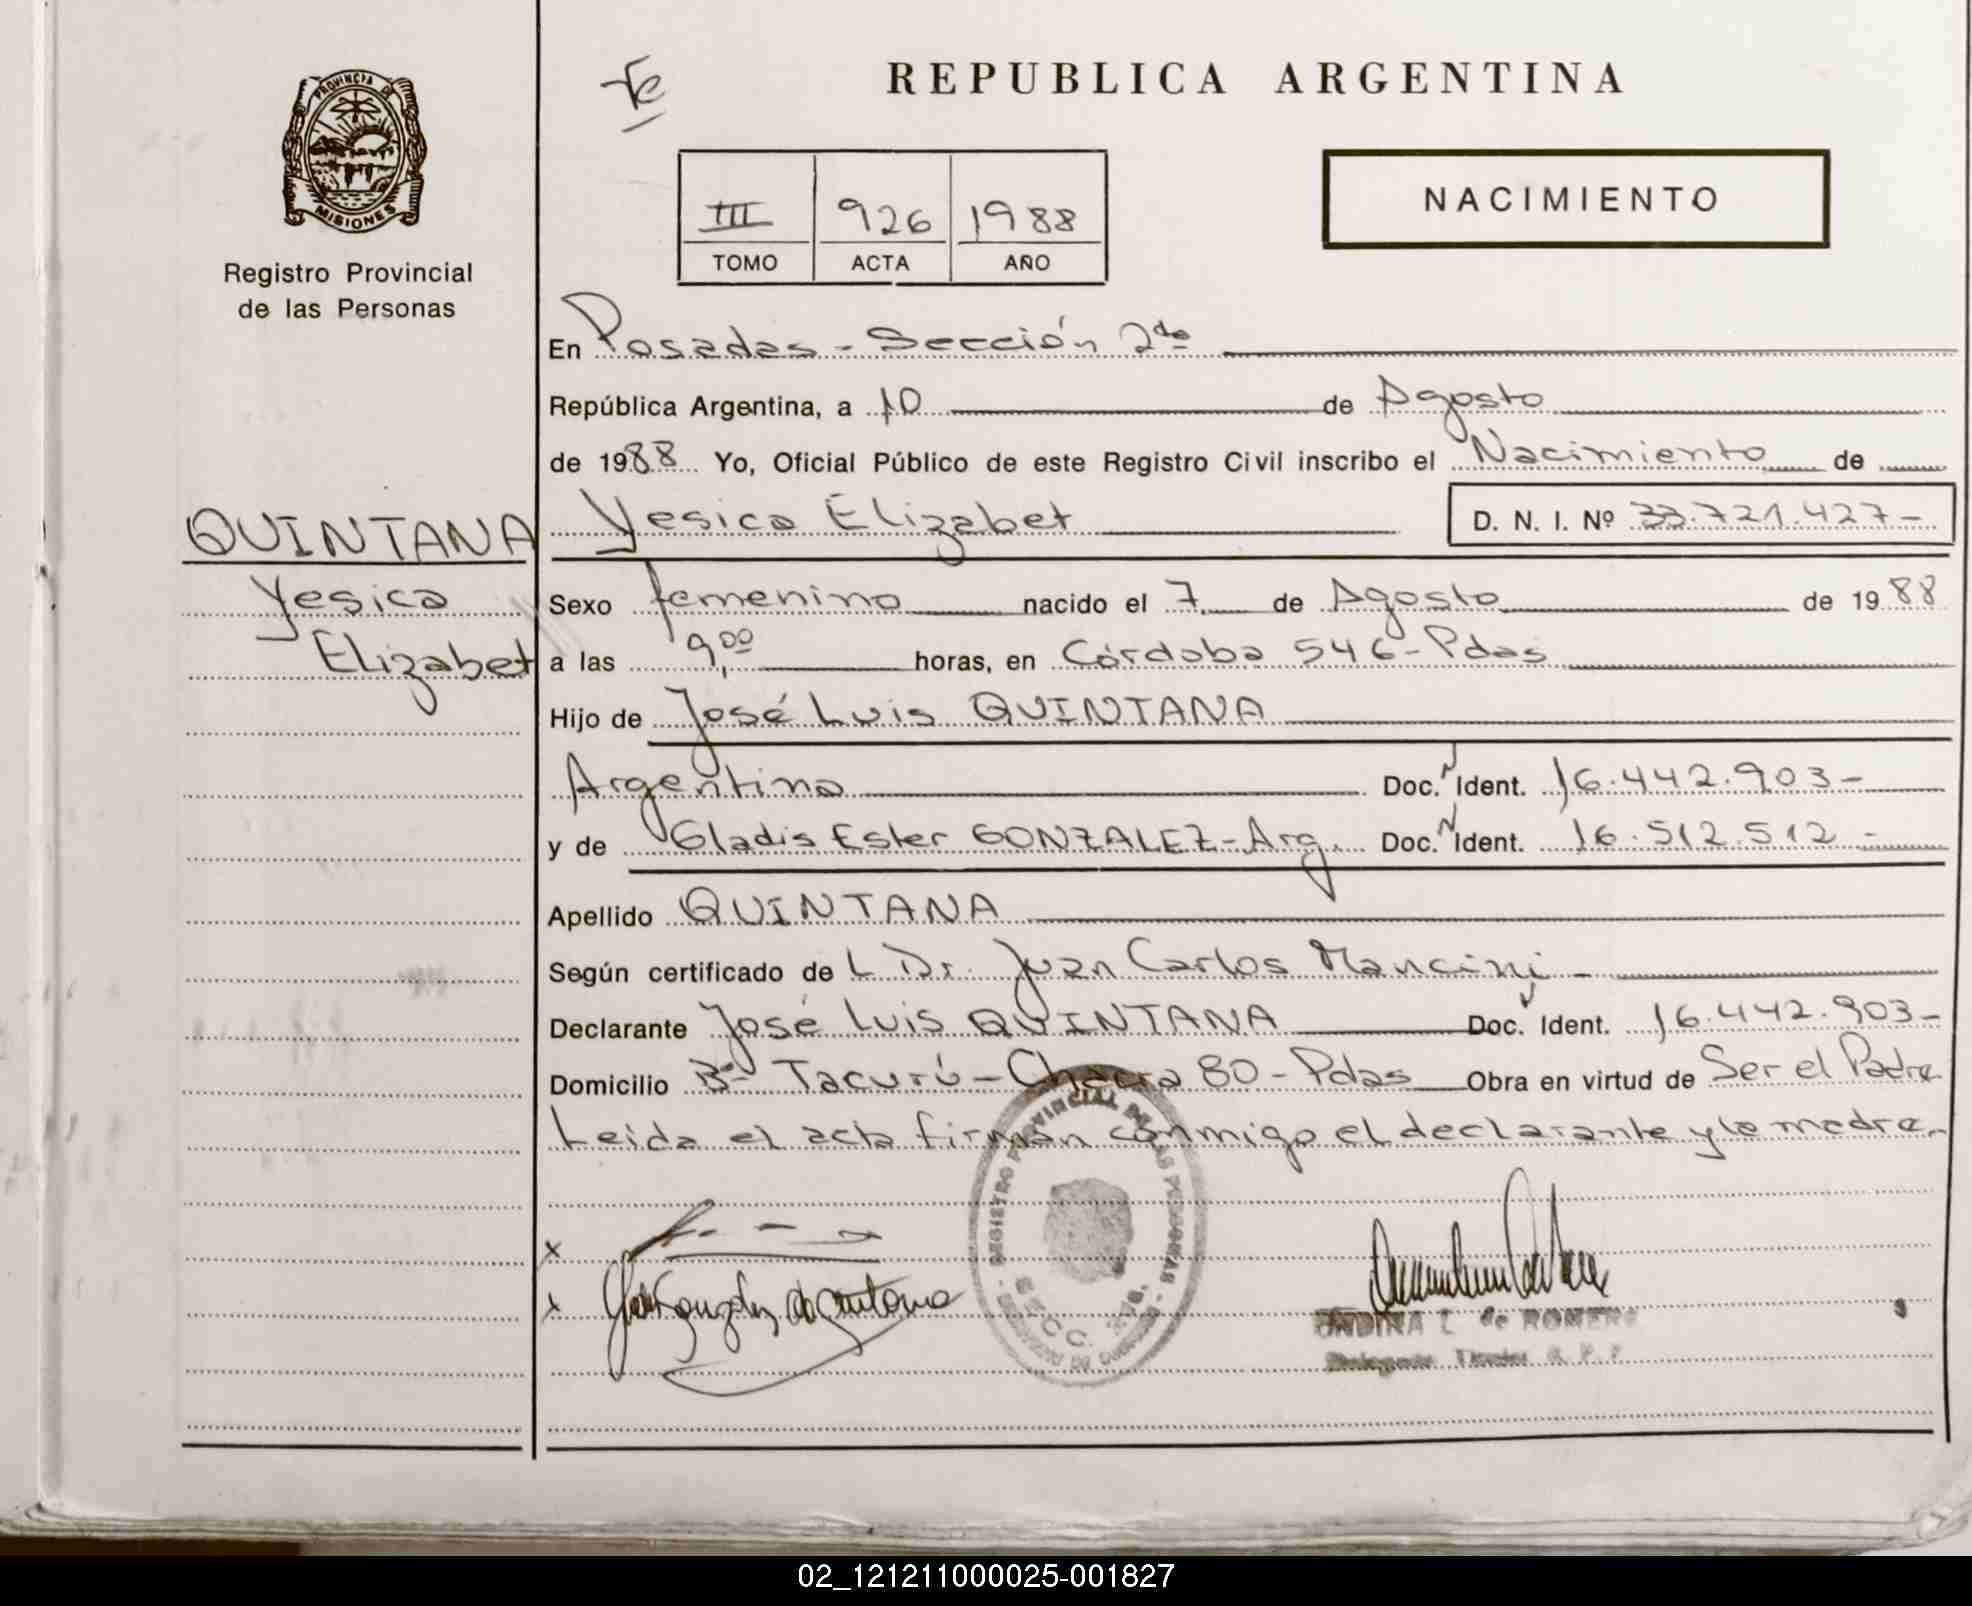 PROVINCIA DE
MISIONES
Registro Provincial
de las Personas
REPUBLICA ARGENTINA
III 926 1988
TOMO ACTA AÑO
NACIMIENTO
En Posadas - Sección 2da
República Argentina, a 10 de Agosto
de 1988 Yo, Oficial Público de este Registro Civil inscribo el Nacimiento de
QUINTANA Yesica Elizabet D. N. I. Nº 33.721.427-
Yesica Sexo femenino nacido el 7 de Agosto de 1988
Elizabet a las 9,00 horas, en Córdoba 546-Pdas
Hijo de José Luis QUINTANA
Argentino Doc. N Ident. 16.442.903-
y de Gladis Ester GONZALEZ-Arg. Doc. N Ident. 16.512.512-
Apellido QUINTANA
Según certificado de L Dr. Juan Carlos Mancini -
Declarante José Luis QUINTANA Doc. Ident. 16.442.903-
Domicilio Bº Tacurú - Chacra 80 - Pdas Obra en virtud de Ser el Padre
Leida el acta firman conmigo el declarante y la madre.
REGISTRO PROVINCIAL DE LAS PERSONAS
x
x
ONDINA L. de ROMERO
02_121211000025-001827